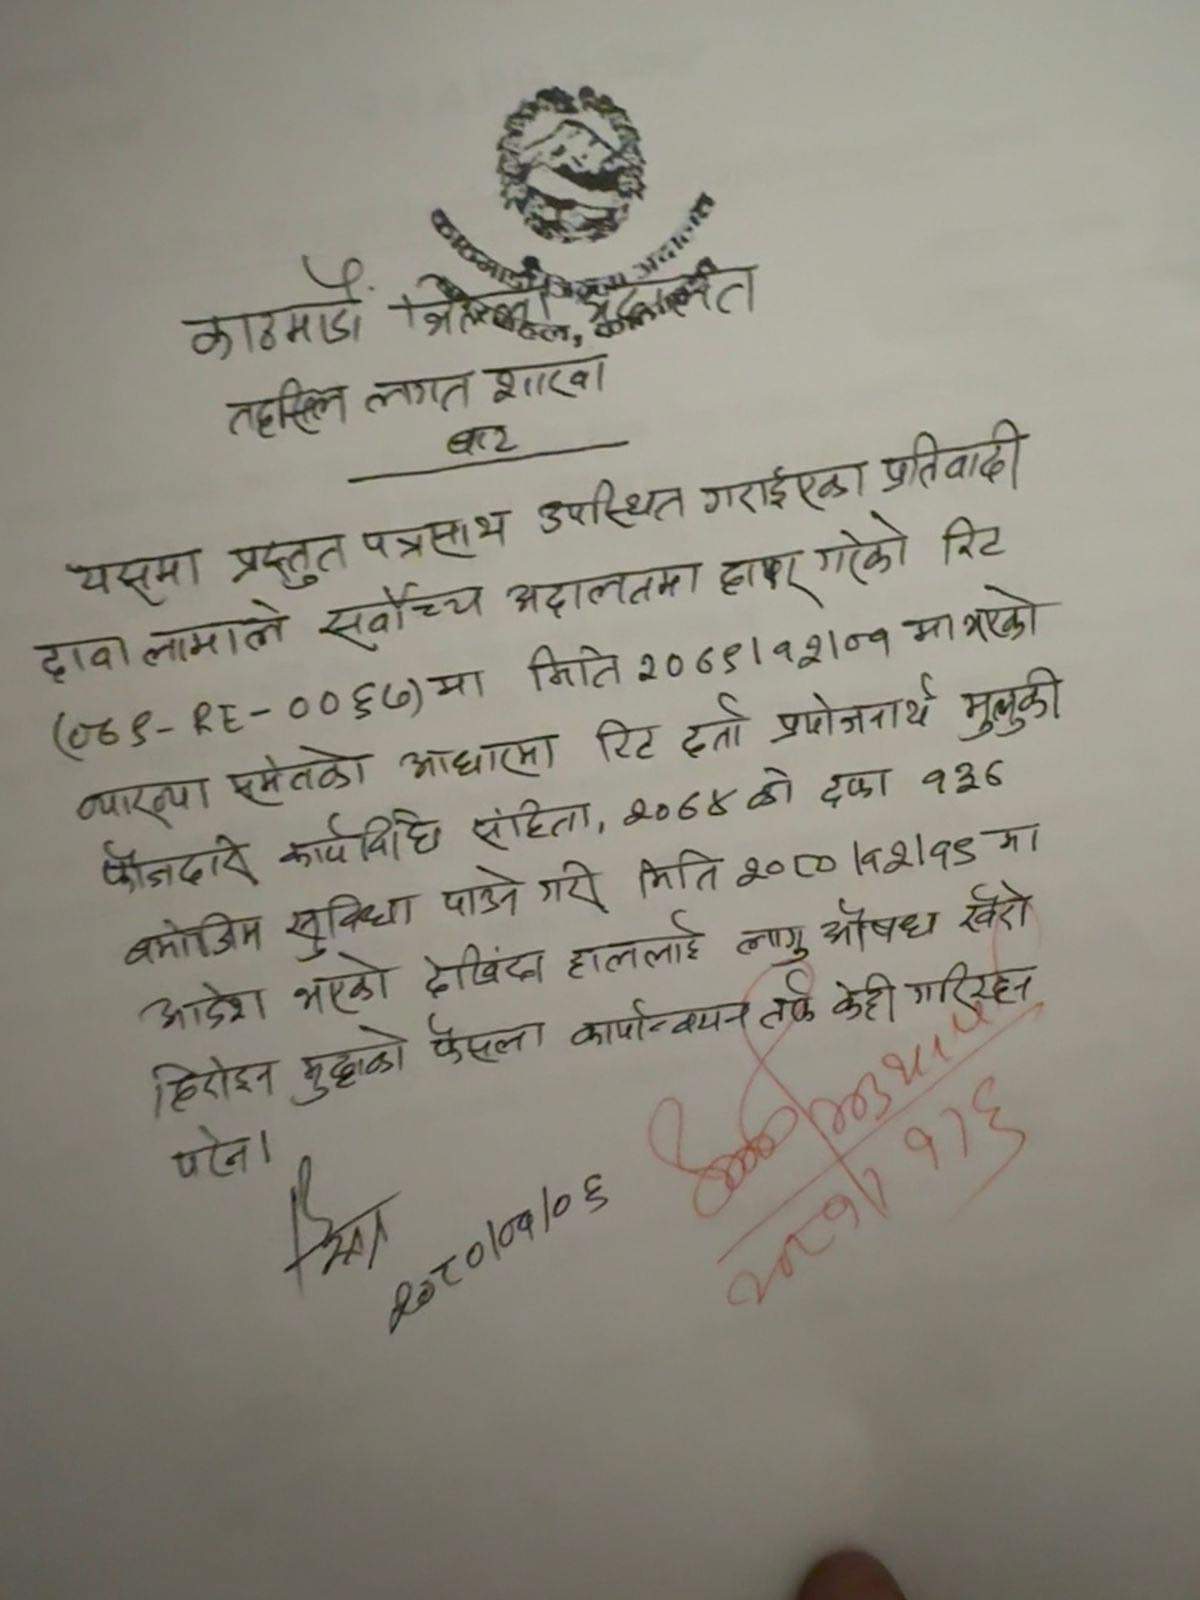 काठमाडौं जिल्ला अदालत
काठमाडौं जिल्ला अदालत
तहसिल लगत शाखा
बाट
यसमा प्रस्तुत पत्रसाथ उपस्थित गराईएका प्रतिवादी
दावा लामाले सर्वोच्च अदालतमा दायर गरेको रिट
(०७९-RE-००६७) मा मिति २०७९।१२।०१ मा भएको
व्याख्या समेतको आधारमा रिट दर्ता प्रयोजनार्थ मुलुकी
फौजदारी कार्यविधि संहिता, २०७४ को दफा १३६
बमोजिम सुविधा पाउने गरी मिति २०८०।१२।१९ मा
आदेश भएको देखिंदा हाललाई लागु औषध खैरो
हिरोइन मुद्दाको फैसला कार्यान्वयन तर्फ केही गरिरहन
परेन।
२०८०/०१/०६